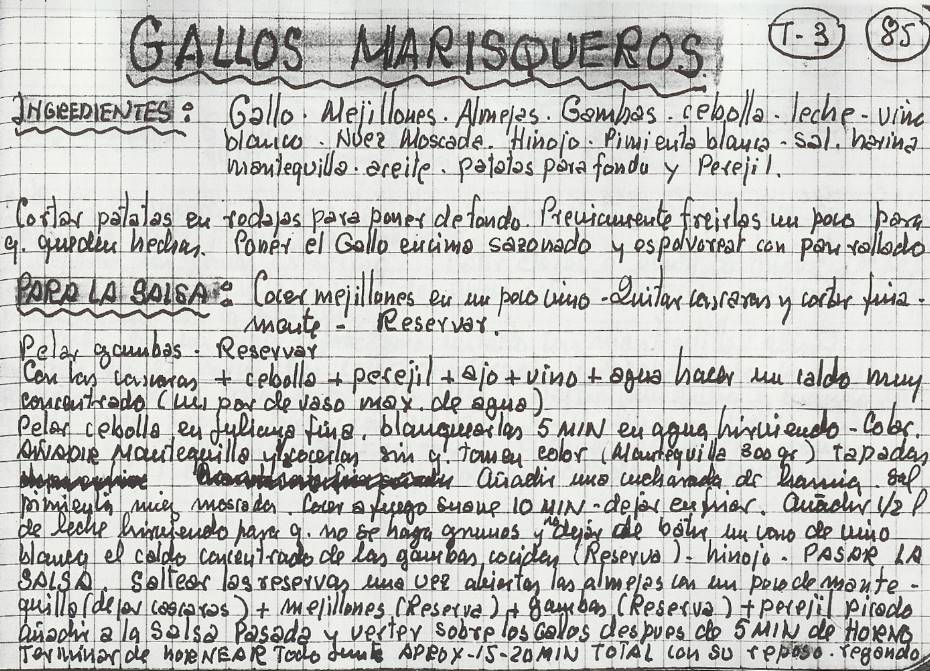 GALLOS MARISQUEROS. T-3 85
INGREDIENTES: Gallo. Mejillones. Almejas. Gambas. cebolla. leche - vino
blanco. Nuez Moscada. Hinojo. Pimienta blanca. sal. harina
mantequilla. aceite. patatas para fondo y Perejil.
Cortar patatas en rodajas para poner de fondo. Previamente freirlas un poco para
q. queden hechas. Poner el Gallo encima sazonado y espolvorear con pan rallado
PARA LA SALSA: Cocer mejillones en un poco vino - Quitar cascaras y cortar fina-
mente - Reservar.
Pelar gambas. Reservar
Con las cascaras + cebolla + perejil + ajo + vino + agua hacer un caldo muy
concentrado (un par de vaso max. de agua)
Pelar cebolla en juliana fina. blanquearlas 5 MIN en agua hirviendo - Colar.
AÑADIR Mantequilla y cocerlas sin q. tomen color (Mantequilla 300 gr) tapadas
Añadir una cucharada de harina. Sal
pimienta nuez moscada. Cocer a fuego suave 10 MIN - dejar enfriar. Añadir 1/2 l
de leche hirviendo para q. no se haga grumos y no dejar de batir un vaso de vino
blanco y el caldo concentrado de las gambas cocidas (Reserva) - hinojo - PASAR LA
SALSA. Saltear las reservas una vez abiertas las almejas con un poco de mante-
quilla (dejar cascaras) + mejillones (Reserva) + gambas (Reserva) + perejil picado
añadir a la Salsa Pasada y verter sobre los Gallos despues de 5 MIN de HORNO
Terminar de hoRNEAR Todo Junto APROX - 15-20 MIN TOTAL con su reposo. regando